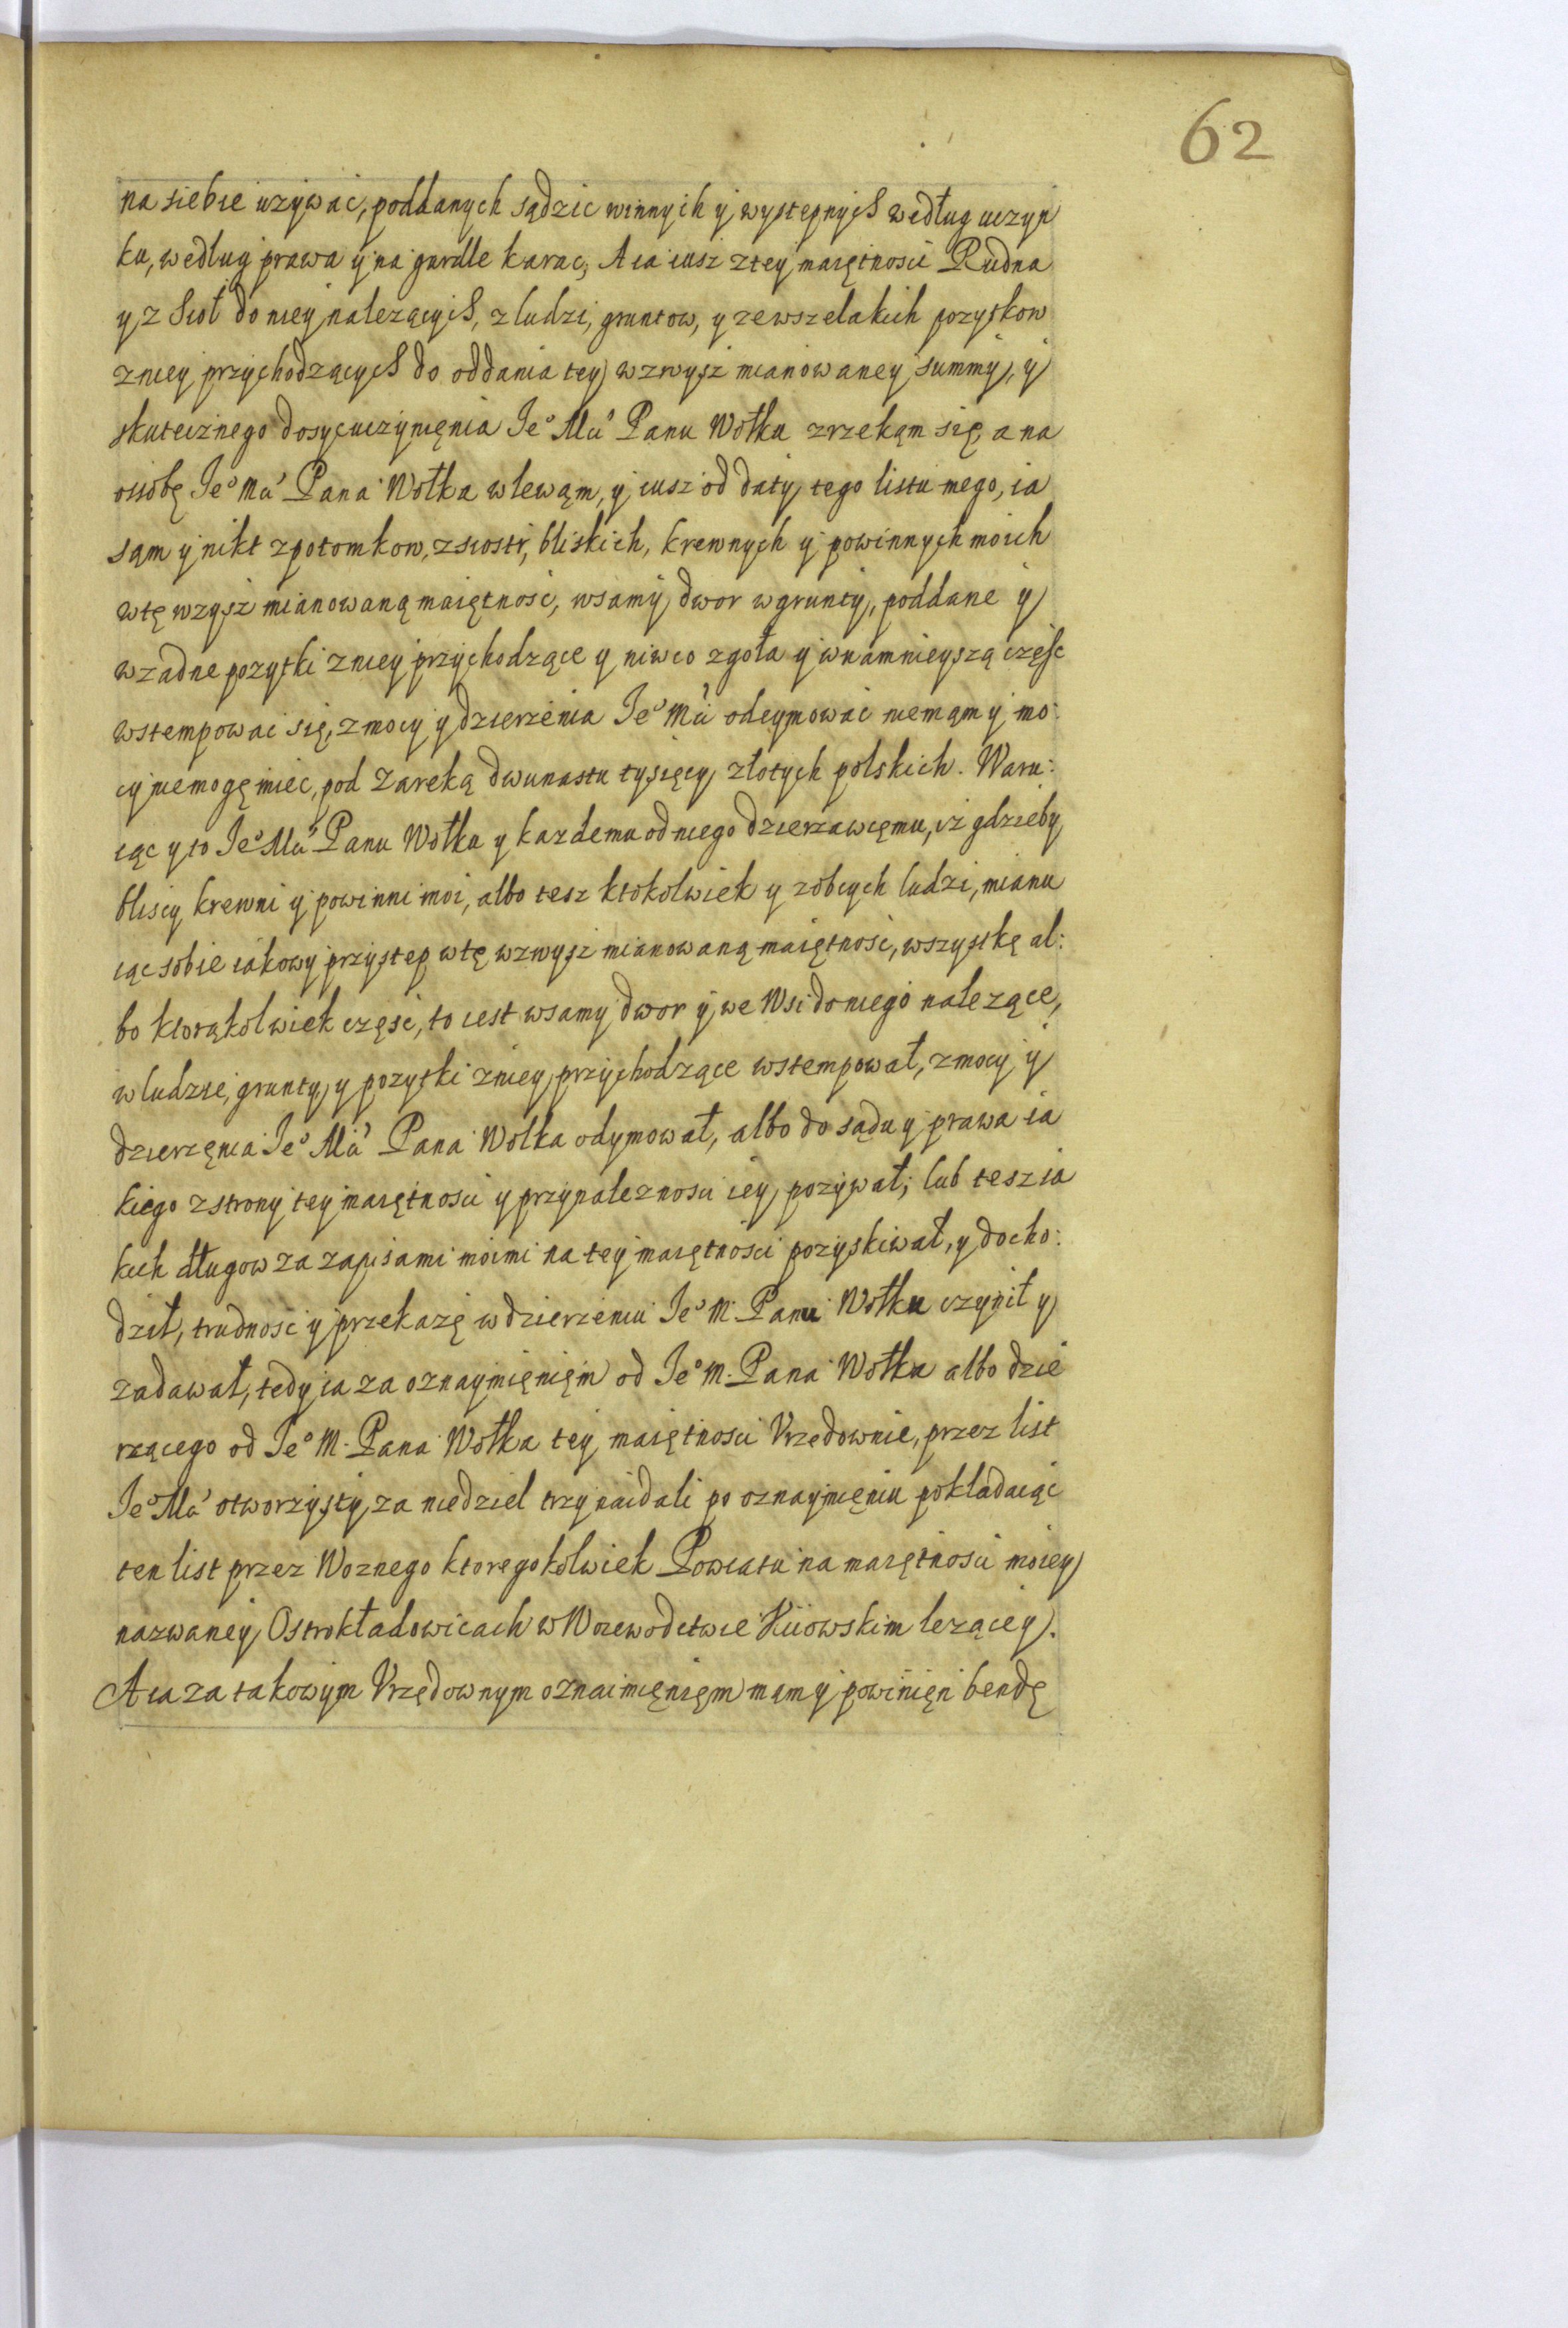 62
na siebie uzywac, poddanych sądzic winnych y występnych według uczyn
ku, według prawa y na gardle karac, A ia iusz z tey maiętnosci Rudna
y z Sioł do niey nalezących, z ludzi, gruntow, y ze wszelakich pozytkow
z niey przychodzących do oddania tey wzwysz mianowaney summy, y
skutecznego dosycuczynięnia Ieº Mci Panu Wołku zrzekąm się a na
ossobę Ieº Mci Pana Wołka wlewąm, y iusz od daty tego listu mego, ia
sąm y nikt z potomkow, z siostr, bliskich, krewnych y powinnych moich
w tę wzysz mianowaną maiętnosc, w samy dwor w grunty, poddane y
w zadne pozytki z niey przychodzące y niwco zgoła y w namnieyszą częsc
wstempowac się, z mocy y dzierzenia Ieº Mci odeymowac niemąm y mo:
cy niemogę miec, pod Zareką dwunastu tysięcy złotych polskich. Waru:
iąc y to Ieº Mci Panu Wołku y kazdemu od niego dzierzawcęmu, iz gdzieby
bliscy krewni y powinni moi, albo tesz ktokolwiek y z obcych ludzi, mianu
iąc sobie iakowy przystep w tę wzwysz mianowaną maiętnosc, wszystkę al:
bo ktorąkolwiek częsc, to iest w samy dwor y we Wsi do niego nalezące,
w ludzie, grunty, y pozytki z niey przychodzące wstempował, z mocy y
dzierzęnia Ieº Mci Pana Wolka odymował, albo do sądu y prawa ia
kiego z strony tey maiętnosci y przynaleznosci iey pozywał, lub tesz ia
kich długow za zapisami moimi na tey maiętnosci pozyskiwał, y docho:
dził, trudnosc y przekazę w dzierzeniu Ieº M. Panu Wołku czynił y
zadawał, tedy ia za oznaymięnięm od Ieº M. Pana Wołka albo dzie
rzącego od Ieº M. Pana Wołka tey maiętnosci Vrzędownie, przez list
Ieº Mci otworzysty, za niedziel trzy naidali po oznaymięniu pokładaiąc
ten list przez Woznego ktoregokolwiek Powiatu na maiętnosci moiey
nazwaney Ostrokładowicach w Woiewodctwie Kiiowskim lezącey.
A ia za takowym Vrzędownym oznaimięnięm mąm y powinięn bendę